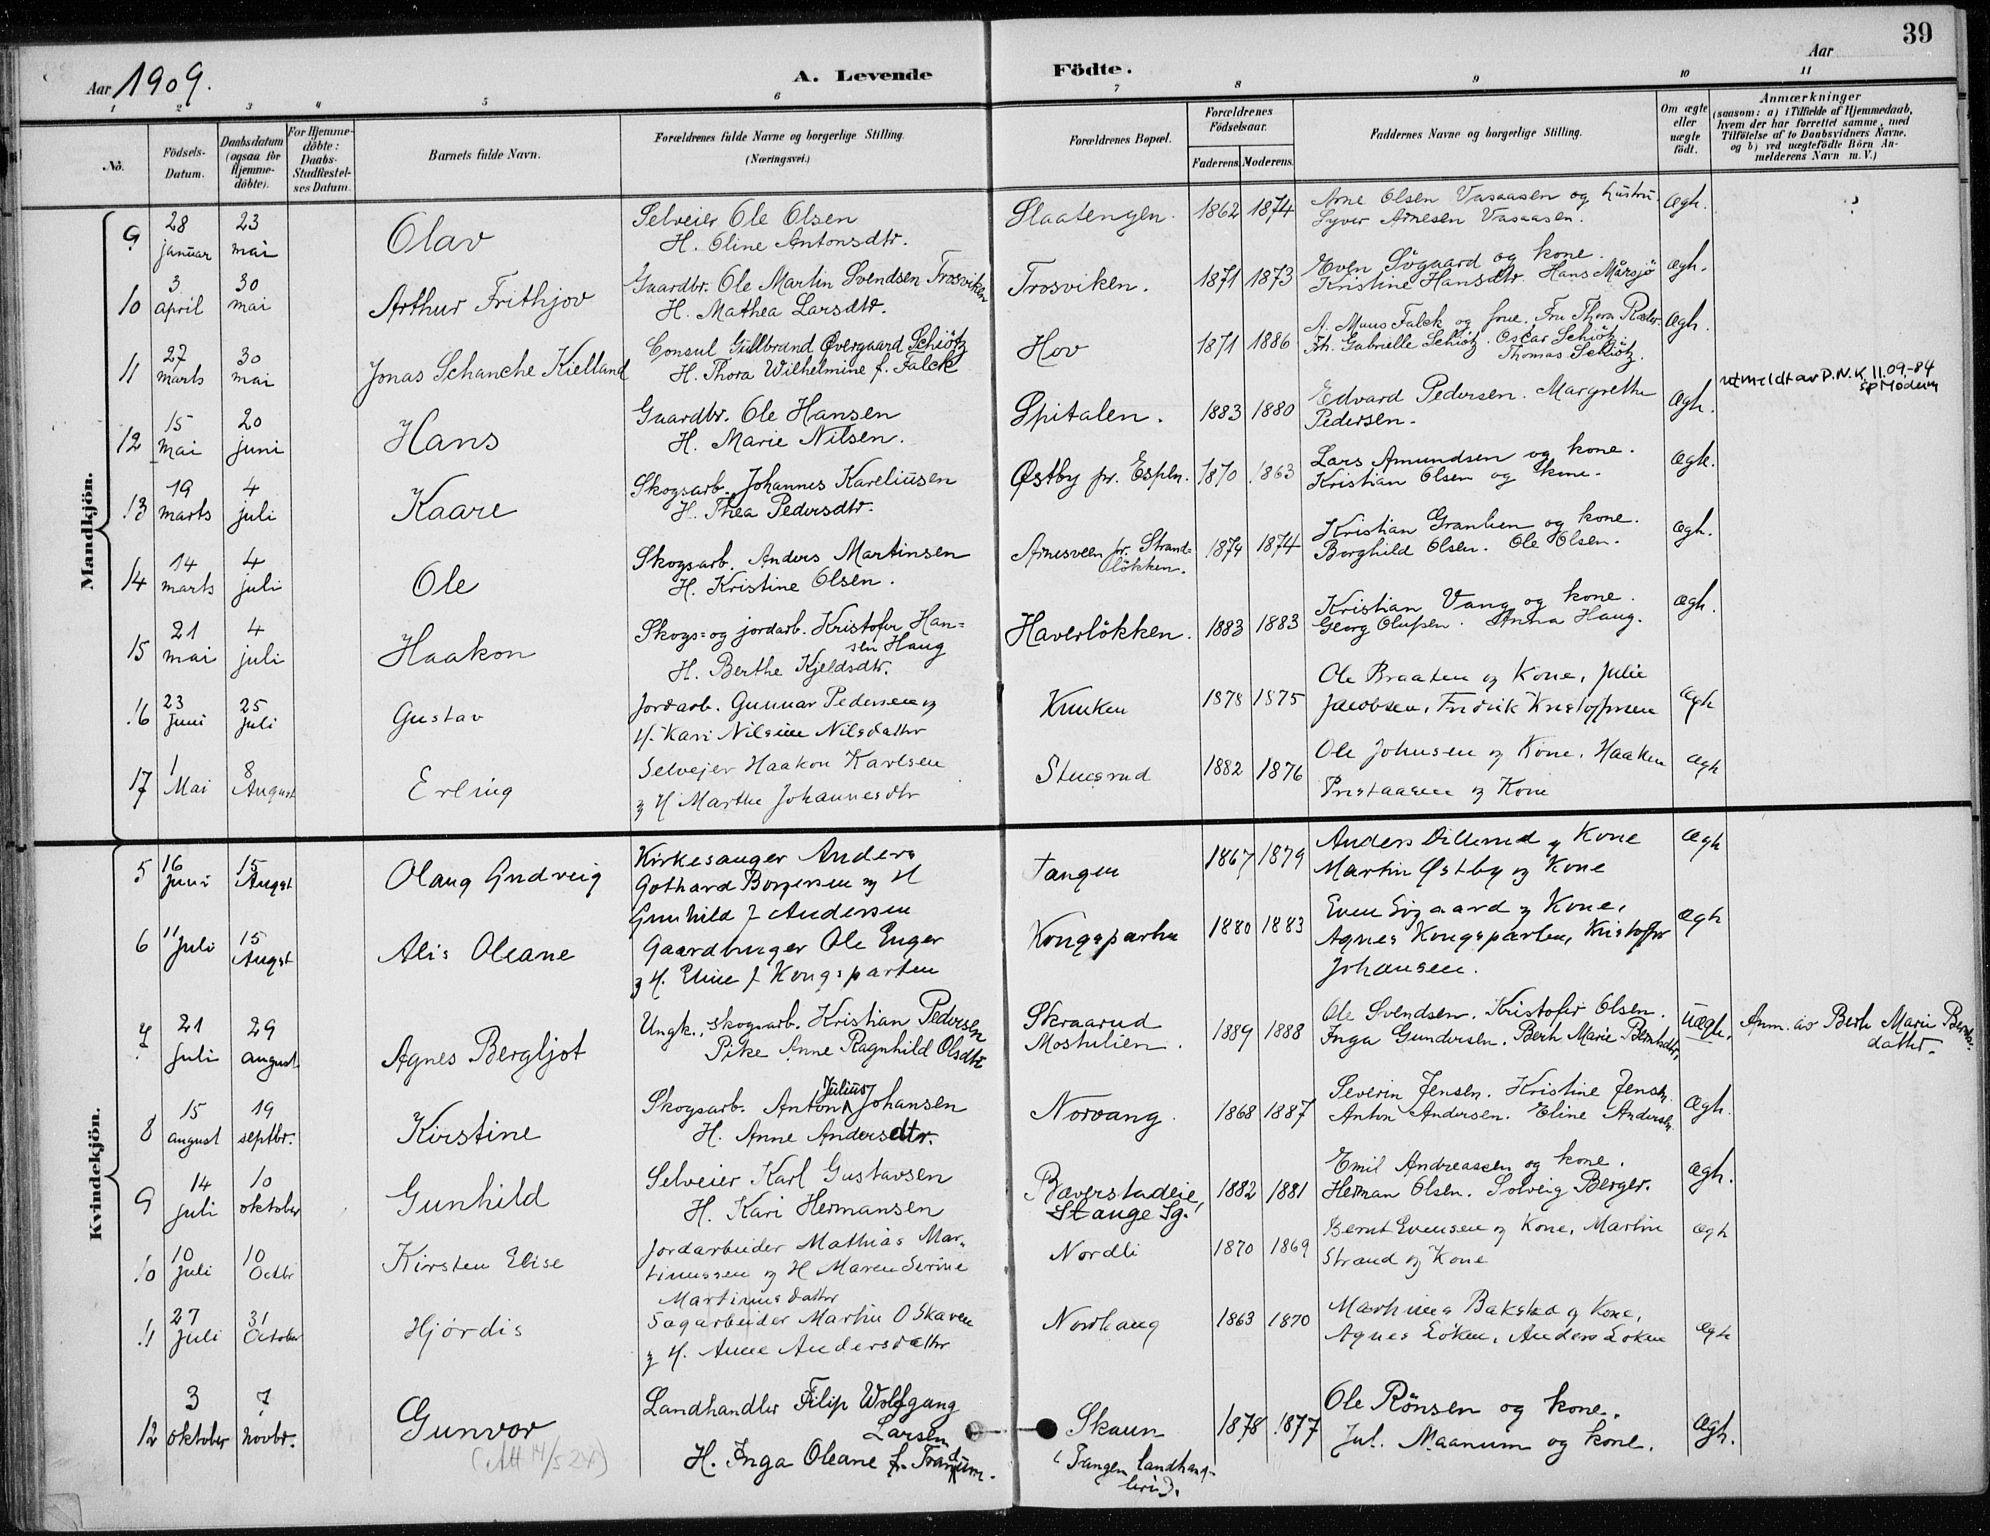 39
Aar 1909.
A. Levende Födte.
Aar
1 2 3 4 5 6 7 8 9 10 11
No.
Födsels-Datum.
Daabsdatum (ogsaa for Hjemme-döbte).
For Hjemme-döbte: Daabs-Stadfæstel-ses Datum.
Barnets fulde Navn.
Forældrenes fulde Navne og borgerlige Stilling.
(Næringsvei.)
Forældrenes Bopæl.
Forældrenes Födselsaar.
Faderens. Moderens.
Faddernes Navne og borgerlige Stilling.
Om ægte eller uægte födt.
Anmærkninger
(saasom: a) i Tilfælde af Hjemmedaab, hvem der har forrettet samme, med Tilföielse af to Daabsvidners Navne, og b) ved uægtefödte Börn An-melderens Navn m. V.)
Mandkjön.
9 28 januar 23 mai Olav Selveier Ole Olsen
H. Oline Antonsdtr. Slaatengen. 1862 1874 Arne Olsen Vasaasen og hustru.
Syver Arnesen Vasaasen. Ægh.
10 3 april 30 mai Arthur Frithjov Gaardbr. Ole Martin Svendsen Trosviken
H. Mathea Larsdtr. Trosviken. 1871 1873 Even Sögaard og kone.
Kristine Hansdtr. Hans Mårsjö Ægh.
11 27 marts 30 mai Jonas Schanche Kielland Consul Gullbrand Øvergaard Schiötz
H. Thora Wilhelmine f. Falck Hov 1871 1886 A. Muus Falck og frue. Fru Thora Røder.
Fr. Gabrielle Schiötz. Oscar Schiötz.
Thomas Schiötz. Ægh.
utmeldt av D.N.K 11.09.-84
12 15 mai 20 juni Hans Gaardbr. Ole Hansen
H. Marie Nilsen. Spitalen. 1883 1880 Edvard Pedersen. Margrethe
Pedersen. Ægh.
13 19 marts 4 juli Kaare Skogsarb. Johannes Kareliusen
H. Thea Pedersdtr. Østby pr. Espln. 1870 1863 Lars Amundsen og kone.
Kristian Olsen og kone. Ægh.
14 14 marts 4 juli Ole Skogsarb. Anders Martinsen
H. Kristine Olsen. Arnesveen pr. Strand-
løkken. 1874 1874 Kristian Granlien og kone.
Borghild Olsen. Ole Olsen. Ægh.
15 21 mai 4 juli Haakon Skogs= og jordarb. Kristofer Han=
sen Haug
H. Berthe Kjeldsdtr. Haverlökken. 1883 1883 Kristian Vang og kone.
Georg Olufsen. Anna Haug. Ægh.
16 23 Juni 25 Juli Gustav Jordarb. Gunnar Pedersen og
H. Kari Nilsine Nilsdatter Knuken 1878 1875 Ole Braaten og Kone, Julie
Jacobsen, Fredrik Kristoffersen Ægh
17 1 Mai 8 August Erling Selvejer Haakon Karlsen
og H Marthe Johannesdtr Stensrud 1882 1876 Ole Johnsen og Kone, Haaken
Prestaasen og Kone Ægh
Kvindekjön.
5 16 Juni 15 Augst Olaug Gudveig Kirkesanger Anders
Gothard Borgersen og H
Gunhild f Andersen Tangen 1867 1879 Anders Dillerud og Kone
Martin Østby og Kone Ægh
6 11 Juli 15 Augst Alis Oleane Gaardbruger Ole Enger
og H. Eline f Kongsparten Kongsparten 1880 1883 Even Sögaard og Kone,
Agnes Kongsparten, Kristoffer
Johansen. Ægh
7 21 juli 29 august Agnes Bergljot Ungk., skogsarb. Kristian Pedersen
Pike Anne Ragnhild Olsdtr Skraarud
Mostulien. 1889 1888 Ole Svendsen. Kristofer Olsen.
Inga Gundersen. Berh Marie Berntsdtr, Uægh. Anm. av Berh Marie
datter.
8 15 august 19 septbr. Kirstine Skogsarb. Anton Julius Johansen
H. Anne Andersdtr. Norvang. 1868 1887 Severin Jensen. Kristine Jensen.
Anton Andersen. Eline Andersen. Ægh.
9 14 juli 10 oktober Gunhild Selveier Karl Gustavsen
H. Kari Hermansen Bæverstadeie,
Stange Sg. 1882 1881 Emil Andreassen og kone.
Herman Olsen. Solveig Berger. Ægh.
10 10 Juli 10 Octbr Kirsten Elise Jordarbeider Mathias Mar-
tinussen og H Maren Serine
Martinusdatter Nordli 1870 1869 Bernt Evensen og Kone, Martin
Strand og Kone Ægh
11 27 Juli 31 October Hjördis Sagarbeider Martin O Skaven
og H. Anne Andersdatter Nordhaug 1863 1870 Marthinus Bakstad og Kone,
Agnes Löken, Anders Löken Ægh
12 3 oktober 7 novbr. Gunvor
(Att 14/5 24) Landhandler Filip Wolfgang
Larsen
H. Inga Oleane f. Trandum. Skaun
(Tangen landhand-
leri). 1878 1877 Ole Rönsen og kone.
Jul. Maanum og kone. Ægh.